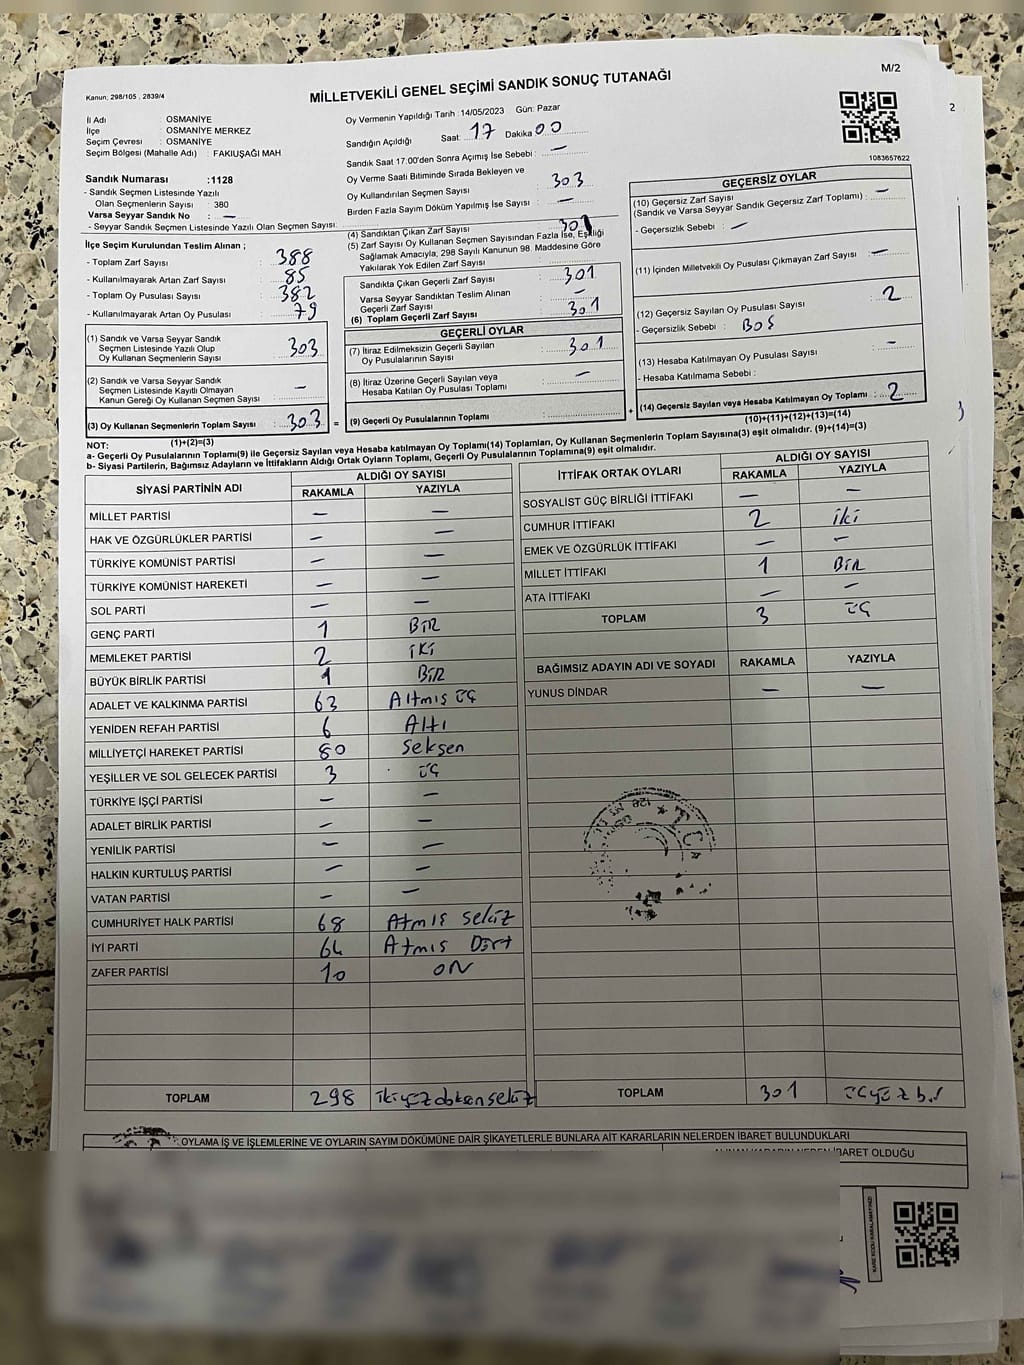 M/2
Kanun; 298/105 , 2839/4
MİLLETVEKİLİ GENEL SEÇİMİ SANDIK SONUÇ TUTANAĞI
2
İl Adı : OSMANİYE
İlçe : OSMANİYE MERKEZ
Seçim Çevresi : OSMANİYE
Seçim Bölgesi (Mahalle Adı) : FAKIUŞAĞI MAH
Sandık Numarası :1128
- Sandık Seçmen Listesinde Yazılı
Olan Seçmenlerin Sayısı : 380
Varsa Seyyar Sandık No : —
- Seyyar Sandık Seçmen Listesinde Yazılı Olan Seçmen Sayısı:
İlçe Seçim Kurulundan Teslim Alınan ;
- Toplam Zarf Sayısı : 388
- Kullanılmayarak Artan Zarf Sayısı : 85
- Toplam Oy Pusulası Sayısı : 382
- Kullanılmayarak Artan Oy Pusulası : 79
(1) Sandık ve Varsa Seyyar Sandık
Seçmen Listesinde Yazılı Olup
Oy Kullanan Seçmenlerin Sayısı : 303
(2) Sandık ve Varsa Seyyar Sandık
Seçmen Listesinde Kayıtlı Olmayan
Kanun Gereği Oy Kullanan Seçmen Sayısı : —
(3) Oy Kullanan Seçmenlerin Toplam Sayısı : 303
(1)+(2)=(3)
Oy Vermenin Yapıldığı Tarih :14/05/2023 Gün: Pazar
Sandığın Açıldığı Saat: 17 Dakika 00
Sandık Saat 17:00'den Sonra Açımış İse Sebebi : —
Oy Verme Saati Bitiminde Sırada Bekleyen ve
Oy Kullandırılan Seçmen Sayısı : 303
Birden Fazla Sayım Döküm Yapılmış İse Sayısı : —
(4) Sandıktan Çıkan Zarf Sayısı : 301
(5) Zarf Sayısı Oy Kullanan Seçmen Sayısından Fazla İse, Eşitliği
Sağlamak Amacıyla, 298 Sayılı Kanunun 98. Maddesine Göre
Yakılarak Yok Edilen Zarf Sayısı :
Sandıkta Çıkan Geçerli Zarf Sayısı : 301
Varsa Seyyar Sandıktan Teslim Alınan
Geçerli Zarf Sayısı : —
(6) Toplam Geçerli Zarf Sayısı : 301
GEÇERLİ OYLAR
(7) İtiraz Edilmeksizin Geçerli Sayılan
Oy Pusulalarının Sayısı : 301
(8) İtiraz Üzerine Geçerli Sayılan veya
Hesaba Katılan Oy Pusulası Toplamı : —
= (9) Geçerli Oy Pusulalarının Toplamı :
1083657622
GEÇERSİZ OYLAR
(10) Geçersiz Zarf Sayısı : —
(Sandık ve Varsa Seyyar Sandık Geçersiz Zarf Toplamı)
- Geçersizlik Sebebi : —
(11) İçinden Milletvekili Oy Pusulası Çıkmayan Zarf Sayısı : —
(12) Geçersiz Sayılan Oy Pusulası Sayısı : 2
- Geçersizlik Sebebi : BOŞ
(13) Hesaba Katılmayan Oy Pusulası Sayısı : —
- Hesaba Katılmama Sebebi :
+ (14) Geçersiz Sayılan veya Hesaba Katılmayan Oy Toplamı : 2
(10)+(11)+(12)+(13)=(14)
NOT:
a- Geçerli Oy Pusulalarının Toplamı(9) ile Geçersiz Sayılan veya Hesaba katılmayan Oy Toplamı(14) Toplamları, Oy Kullanan Seçmenlerin Toplam Sayısına(3) eşit olmalıdır. (9)+(14)=(3)
b- Siyasi Partilerin, Bağımsız Adayların ve İttifakların Aldığı Ortak Oyların Toplamı, Geçerli Oy Pusulalarının Toplamına(9) eşit olmalıdır.
SİYASİ PARTİNİN ADI ALDIĞI OY SAYISI
RAKAMLA YAZIYLA
MİLLET PARTİSİ — —
HAK VE ÖZGÜRLÜKLER PARTİSİ — —
TÜRKİYE KOMÜNİST PARTİSİ — —
TÜRKİYE KOMÜNİST HAREKETİ — —
SOL PARTİ — —
GENÇ PARTİ 1 BİR
MEMLEKET PARTİSİ 2 İKİ
BÜYÜK BİRLİK PARTİSİ 1 BİR
ADALET VE KALKINMA PARTİSİ 63 Altmış üç
YENİDEN REFAH PARTİSİ 6 Altı
MİLLİYETÇİ HAREKET PARTİSİ 80 Seksen
YEŞİLLER VE SOL GELECEK PARTİSİ 3 üç
TÜRKİYE İŞÇİ PARTİSİ — —
ADALET BİRLİK PARTİSİ — —
YENİLİK PARTİSİ — —
HALKIN KURTULUŞ PARTİSİ — —
VATAN PARTİSİ — —
CUMHURİYET HALK PARTİSİ 68 Atmış sekiz
İYİ PARTİ 64 Atmış Dört
ZAFER PARTİSİ 10 ON
TOPLAM 298 ikiyüzdoksansekiz
İTTİFAK ORTAK OYLARI ALDIĞI OY SAYISI
RAKAMLA YAZIYLA
SOSYALİST GÜÇ BİRLİĞİ İTTİFAKI — —
CUMHUR İTTİFAKI 2 iki
EMEK VE ÖZGÜRLÜK İTTİFAKI — —
MİLLET İTTİFAKI 1 BİR
ATA İTTİFAKI — —
TOPLAM 3 üç
BAĞIMSIZ ADAYIN ADI VE SOYADI RAKAMLA YAZIYLA
YUNUS DİNDAR — —
TOPLAM 301 üçyüz bir
OYLAMA İŞ VE İŞLEMLERİNE VE OYLARIN SAYIM DÖKÜMÜNE DAİR ŞİKAYETLERLE BUNLARA AİT KARARLARIN NELERDEN İBARET BULUNDUKLARI
ALINAN KARARIN NEDEN İBARET OLDUĞU
KARE KODU KARALAMAYINIZ!